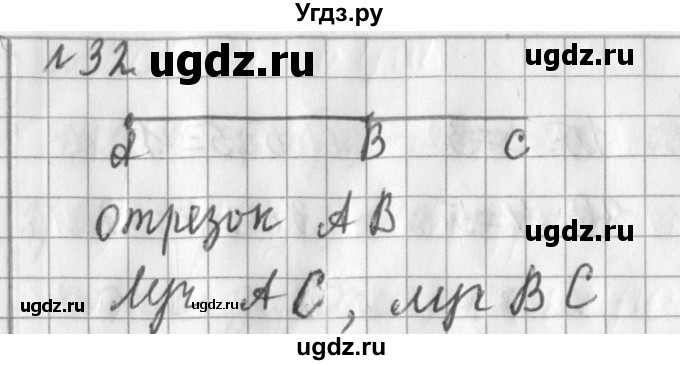 Угдз.ру
№32 ugdz.ru ugdz.ru
А В С
отрезок АВ ugdz.ru
ugdz.ru Луч АС, луч ВС ugdz.ru
ugdz.ru